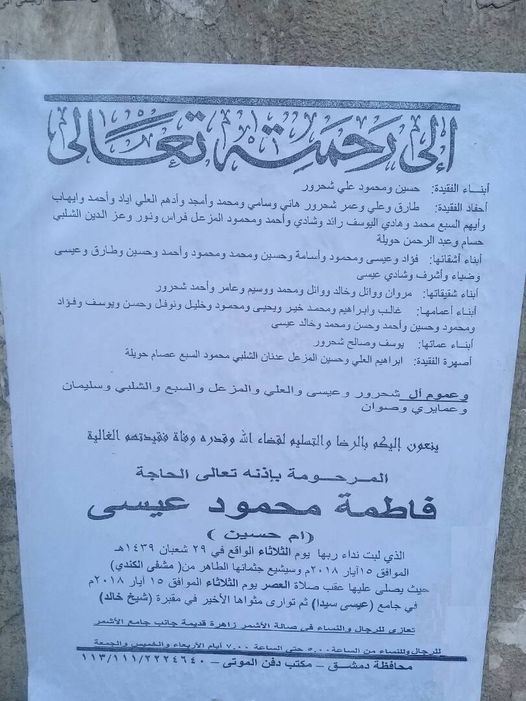 إلى رحمته تعالى
أبناء الفقيدة: حسين ومحمود علي شحرور
أحفاد الفقيدة: طارق وعلي وعمر شحرور هاني وسامي ومحمد وأمجد وأدهم العلي اياد وأحمد وايهاب
وأيهم السبع محمد وهادي اليوسف رائد وشادي وأحمد ومحمود المزعل فراس ونور وعز الدين الشلبي
حسام وعبد الرحمن حويلة
أبناء أشقائها: فؤاد وعيسى ومحمود وأسامة وحسين ومحمد ومحمود وأحمد وحسين وطارق وعيسى
وضياء وأشرف وشادي عيسى
أبناء شقيقاتها: مروان ووائل وخالد ووائل ومحمد ووسيم وعامر وأحمد شحرور
أبناء أعمامها: غالب وابراهيم ومحمد خير ويحيى ومحمود وخليل ونوفل وحسن ويوسف وفؤاد
ومحمود وحسين وأحمد وحسن ومحمد وخالد عيسى
أبناء عماتها: يوسف وصالح شحرور
أصهرة الفقيدة: ابراهيم العلي وحسين المزعل عدنان الشلبي محمود السبع عصام حويلة
وعموم آل شحرور وعيسى والعلي والمزعل والسبع والشلبي وسليمان
وعمايري وصوان
ينعون إليكم بالرضا والتسليم لقضاء الله وقدره وفاة فقيدتهم الغالية
المرحومة بإذنه تعالى الحاجة
فاطمة محمود عيسى
(ام حسين)
الذي لبت نداء ربها يوم الثلاثاء الواقع في ٢٩ شعبان ١٤٣٩هـ
الموافق ١٥ أيار ٢٠١٨م وسيشيع جثمانها الطاهر من (مشفى الكندي)
حيث يصلى عليها عقب صلاة العصر يوم الثلاثاء الموافق ١٥ أيار ٢٠١٨م
في جامع (عيسى سيدا) ثم توارى مثواها الأخير في مقبرة (شيخ خالد)
تعازى للرجال والنساء في صالة الأشمر زاهرة قديمة جانب جامع الأشمر
للرجال وللنساء من الساعة ٥،٠٠ حتى الساعة ٧،٠٠ أيام الأربعاء والخميس والجمعة
محافظة دمشق – مكتب دفن الموتى – ١١٣/١١١/٢٢٢٤٦٤٠